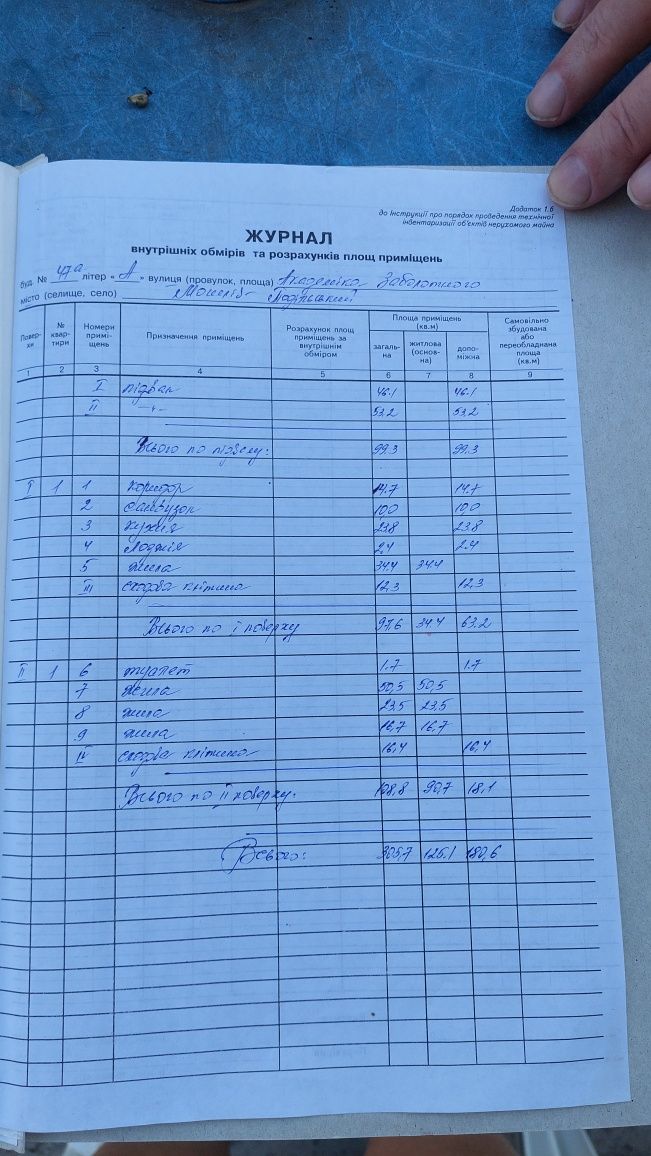 Додаток 1.6
до Інструкції про порядок проведення технічної
інвентаризації об'єктів нерухомого майна
ЖУРНАЛ
внутрішніх обмірів та розрахунків площ приміщень
буд. № 47а літер « А » вулиця (провулок, площа) Академіка Заболотного
місто (селище, село) Могилів - Подільський
Поверхи № квартири Номери приміщень Призначення приміщень Розрахунок площ приміщень за внутрішнім обміром Площа приміщень (кв.м) загальна житлова (основна) допоміжна Самовільно збудована або переобладнана площа (кв.м)
1 2 3 4 5 6 7 8 9
I підвал 46.1 46.1
II -"- 53,2 53,2
Всього по підвалу: 99.3 99.3
I 1 1 коридор 14.7 14.7
2 санвузол 10,0 10,0
3 кухня 23.8 23.8
4 лоджія 2,4 2.4
5 жила 34.4 34.4
III сходова клітина 12,3 12,3
Всього по I поверху 97,6 34.4 63.2
II 1 6 туалет 1.7 1.7
7 жила 50,5 50,5
8 жила 23,5 23,5
9 жила 16,7 16,7
IV сходова клітина 16,4 16,4
Всього по II поверху: 108,8 90,7 18,1
Всього: 305,7 125.1 180,6